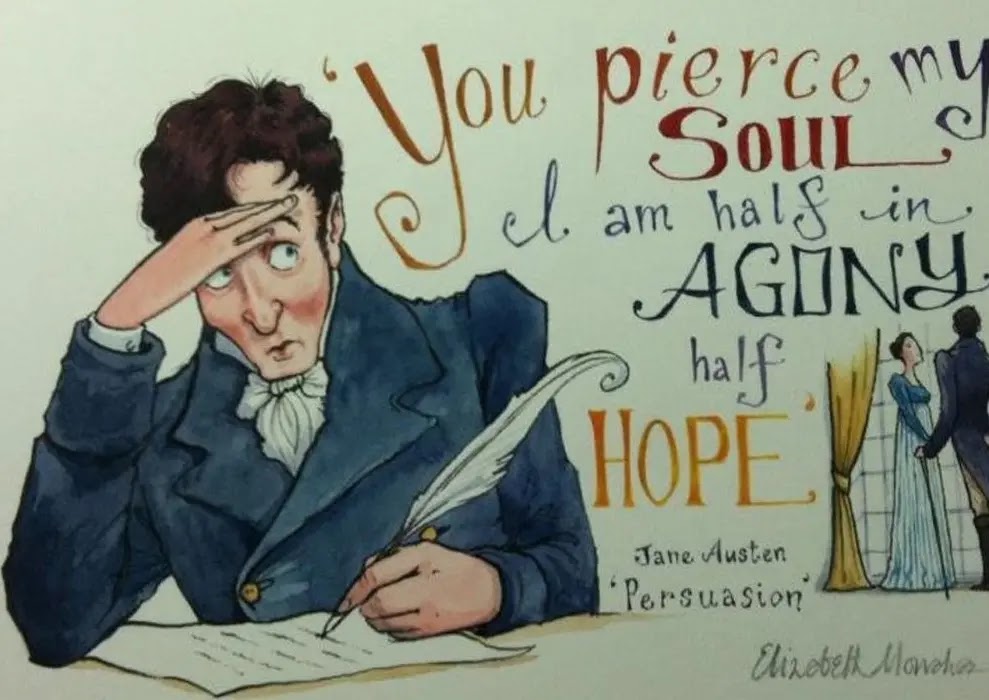 ‘You pierce my
SOUL
I am half in
AGONY
half
HOPE’
Jane Austen
‘Persuasion’
Elizabeth